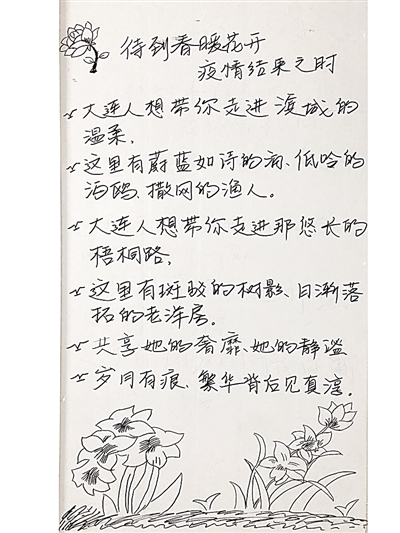 待到春暖花开
疫情结束之时
大连人想带你走进滨城的
温柔,
这里有蔚蓝如诗的海、低吟的
海鸥、撒网的渔人。
大连人想带你走进那悠长的
梧桐路,
这里有斑驳的树影、日渐落
拓的老洋房。
共享她的奢靡、她的静谧
岁月有痕、繁华背后见真淳.